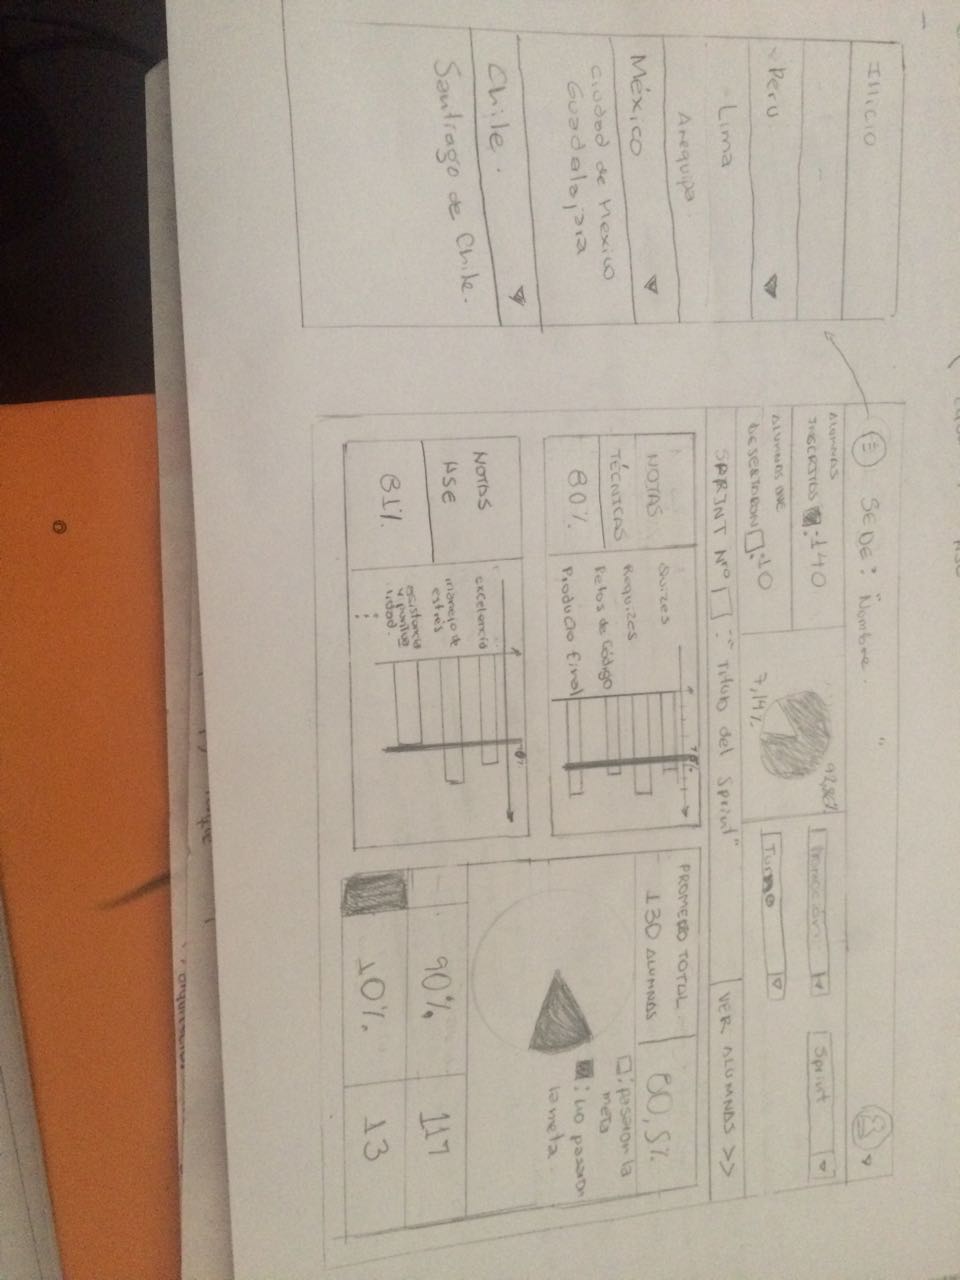 INICIO
Peru
Lima
Arequipa
México
Ciudad de Mexico
Guadalajara
Chile.
Santiago de Chile.
SEDE: "Nombre. "
ALUMNAS
INSCRITAS : 140
ALUMNAS QUE
DESERTARON : 10
92,86%
7,14%
Promoción
Turno
Sprint
SPRINT Nº : "Título del Sprint"
VER ALUMNAS >>
NOTAS
TÉCNICAS
80%
Quizes
Requizes
Retos de Código
Producto Final
NOTAS
HSE
81%
excelencia
manejo de
estrés
PROMEDIO TOTAL
130 ALUMNAS
80,5%
: pasaron la
meta
: no pasaron
la meta.
90%
117
10%.
13